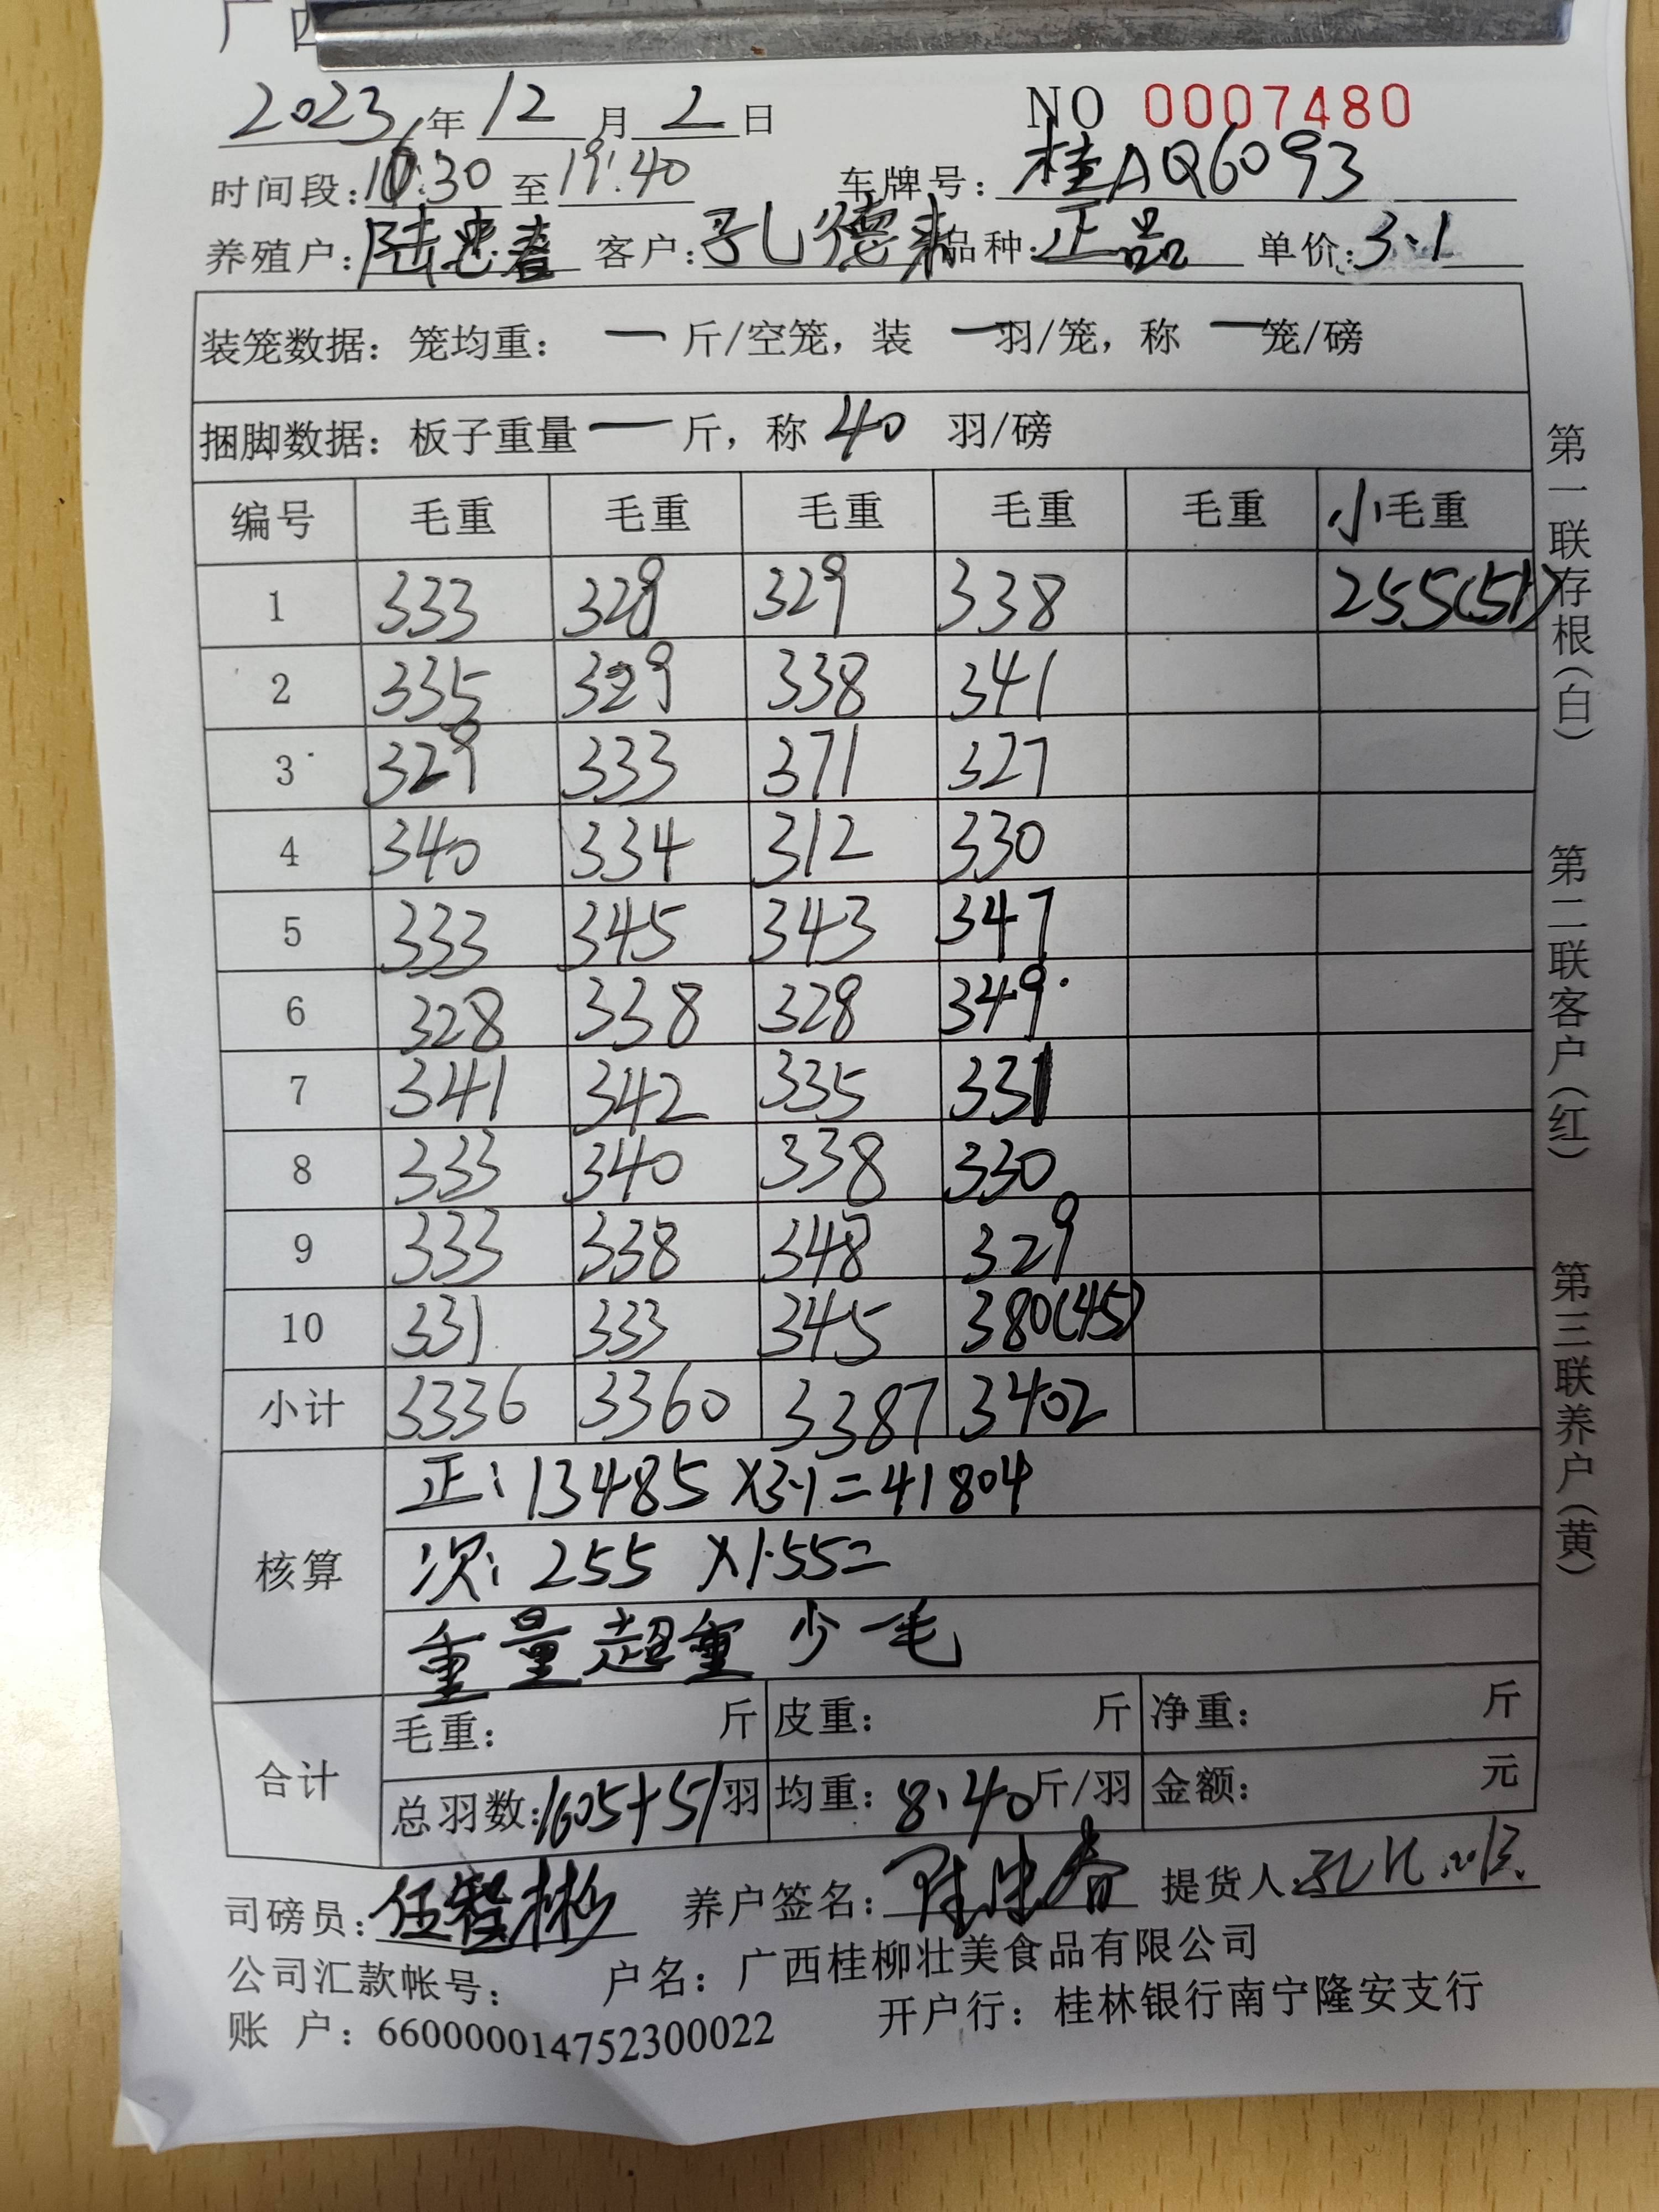 广西
2023年12月2日 NO 0007480
时间段:16:30至19:40 车牌号:桂AQ6093
养殖户:陆忠春 客户:孔德 品种:正品 单价:3.1
装笼数据:笼均重:一斤/空笼,装一羽/笼,称一笼/磅
捆脚数据:板子重量一斤,称40羽/磅
编号 毛重 毛重 毛重 毛重 毛重 小毛重
1 333 328 329 338 255(51)
2 335 329 338 341
3 329 333 371 327
4 340 334 312 330
5 333 345 343 347
6 328 338 328 349
7 341 342 335 331
8 333 340 338 330
9 333 338 348 329
10 331 333 345 380(45)
小计 3336 3360 3387 3402
核算
正:13485×3.1=41804
次:255×1.55=
重量超重少一毛
合计
毛重: 斤 皮重: 斤 净重: 斤
总羽数:1605+51羽 均重:8.40斤/羽 金额: 元
司磅员:任程彬 养户签名:陆忠春 提货人:孔
公司汇款帐号: 户名:广西桂柳壮美食品有限公司
账 户:660000014752300022 开户行:桂林银行南宁隆安支行
第一联存根(白) 第二联客户(红) 第三联养户(黄)